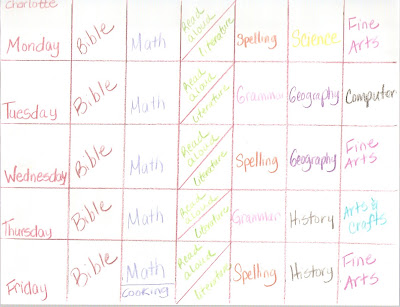 Charlotte
Monday
Bible
Math
Read
aloud
literature
Spelling
Science
Fine
Arts
Tuesday
Bible
Math
Read
aloud
literature
Grammar
Geography
Computer
Wednesday
Bible
Math
Read
aloud
literature
Spelling
Geography
Fine
Arts
Thursday
Bible
Math
Read
aloud
literature
Grammar
History
Arts &
Crafts
Friday
Bible
Math
cooking
Read
aloud
literature
Spelling
History
Fine
Arts